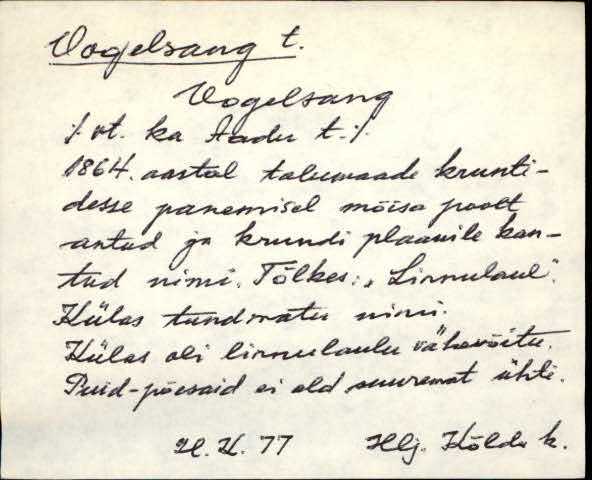 Vogelsang t.
Vogelsang
/. vt. ka Aadu t./.
1864. aastal talumaade krunti-
desse panemisel mõisa poolt
antud ja krundi plaanile kan-
tud nimi. Tõlkes: „Linnulaul".
Külas tundmatu nimi.
Külas oli linnulaulu vähevõitu.
Puid-põesaid ei old suuremat ühti.
H. K. 77 Hlj. Kõlda k.